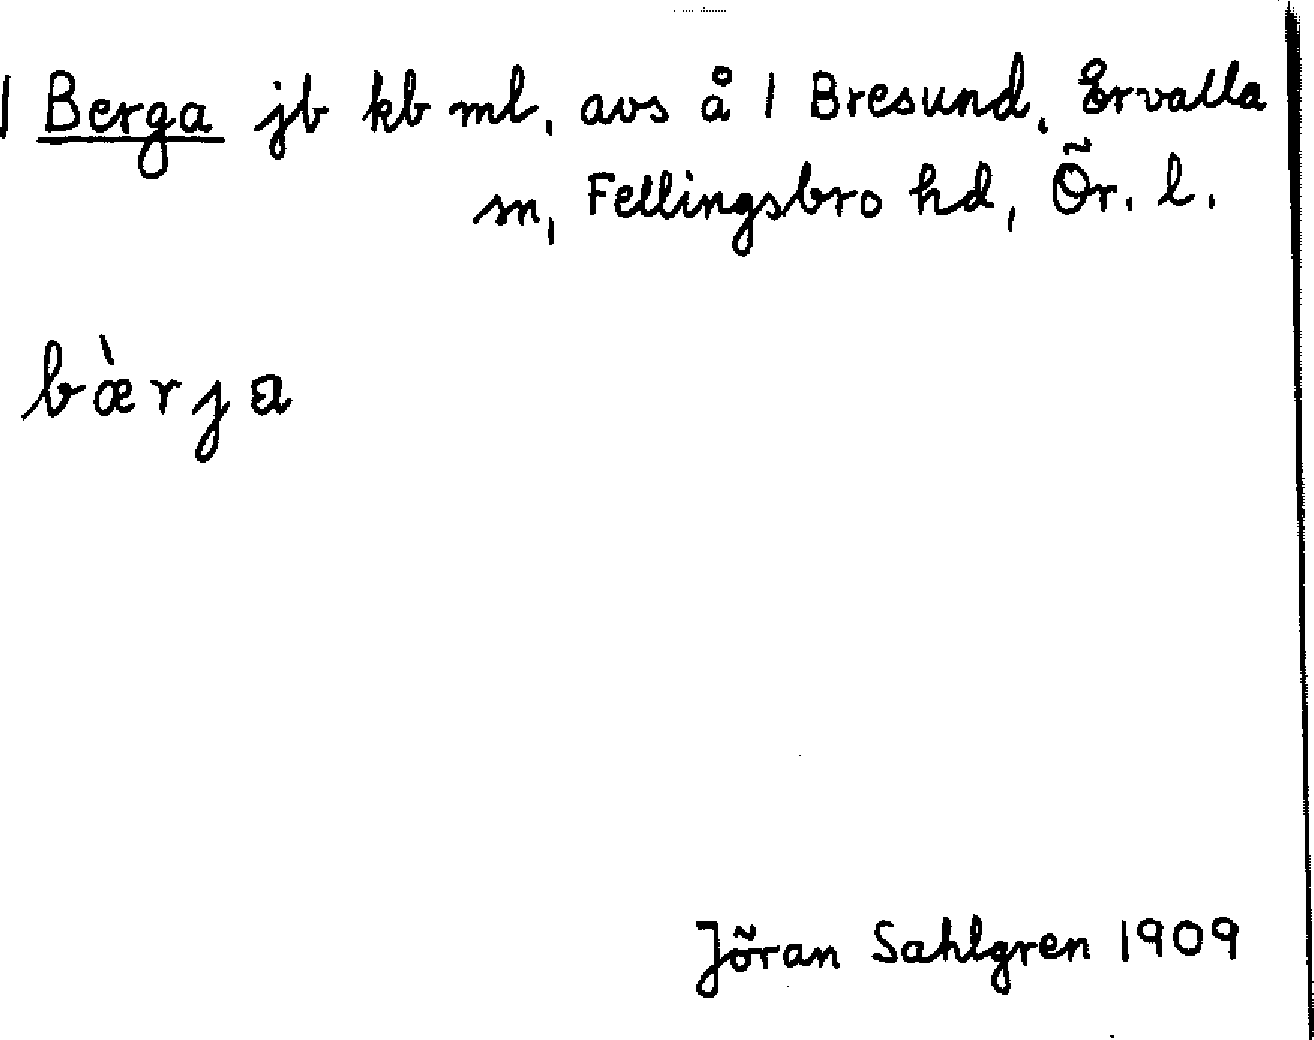 1 Berga jb kb ml, avs å 1 Bresund, Ervalla
sn, Fellingsbro hd, Ör. l.
bæ̀rja
Jöran Sahlgren 1909